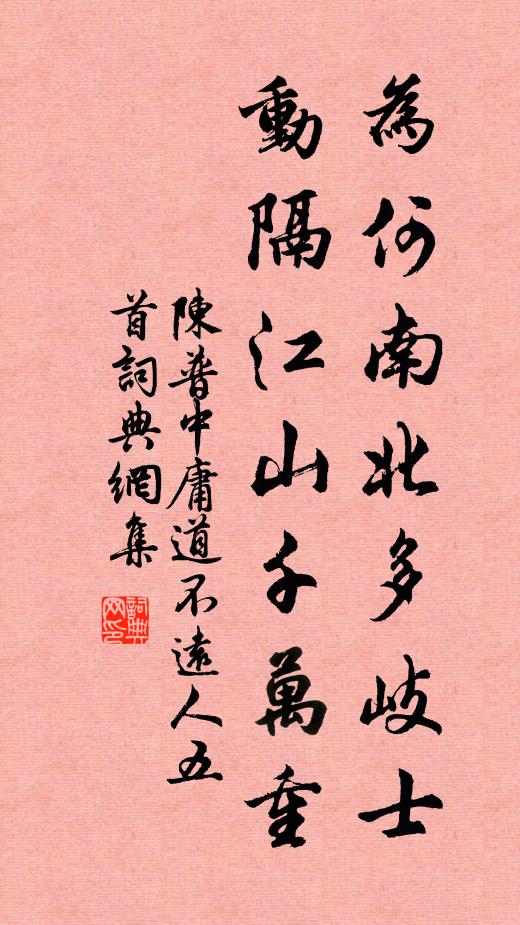 為何南北多歧士
動隔江山千萬重
陳普中庸道不遠人五
首詞典網集
詞典
网印